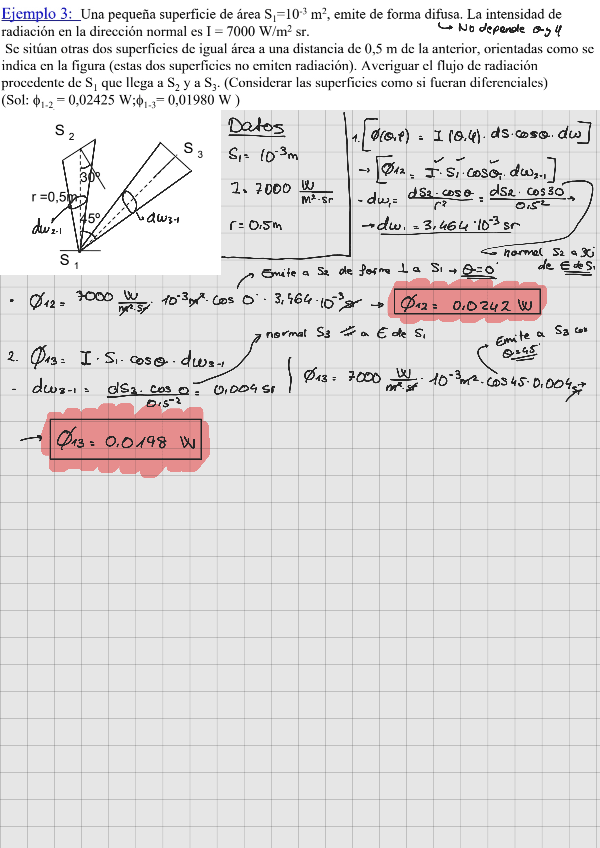 Ejemplo 3: Una pequeña superficie de área S1=10-3 m2, emite de forma difusa. La intensidad de
radiación en la dirección normal es I = 7000 W/m2 sr.
↳ No depende θ y φ
Se sitúan otras dos superficies de igual área a una distancia de 0,5 m de la anterior, orientadas como se
indica en la figura (estas dos superficies no emiten radiación). Averiguar el flujo de radiación
procedente de S1 que llega a S2 y a S3. (Considerar las superficies como si fueran diferenciales)
(Sol: ϕ1-2 = 0,02425 W;ϕ1-3= 0,01980 W )
S2
S3
30º
r =0,5m
45º
dw2-1
dw3-1
S1
Datos
S1 = 10-3m
I = 7000 W/m2·sr
r = 0,5m
1. [Φ(θ,φ) = I (θ,φ) · dS · cosθ · dw]
→ [Φ12 = I · S1 · cosθ1 · dw2-1]
- dw1 = dS2 · cosθ / r2 = dS2 · cos30 / 0,52 →
→ dw1 = 3,464 · 10-3 sr
normal S2 a 30
de E de S1
Emite a S2 de forma ⊥ a S1 → θ=0
· Φ12 = 7000 W/m2·sr · 10-3m2 · cos 0 · 3,464 · 10-3sr → Φ12 = 0,0242 W
normal S3 // a E de S1
Emite a S3 con
θ=45
2. Φ13 = I · S1 · cosθ · dw3-1
- dw3-1 = dS3 · cos 0 / 0,5-2 = 0,004 sr
Φ13 = 7000 W/m2·sr · 10-3m2 · cos45 · 0,004sr →
→ Φ13 = 0,0198 W